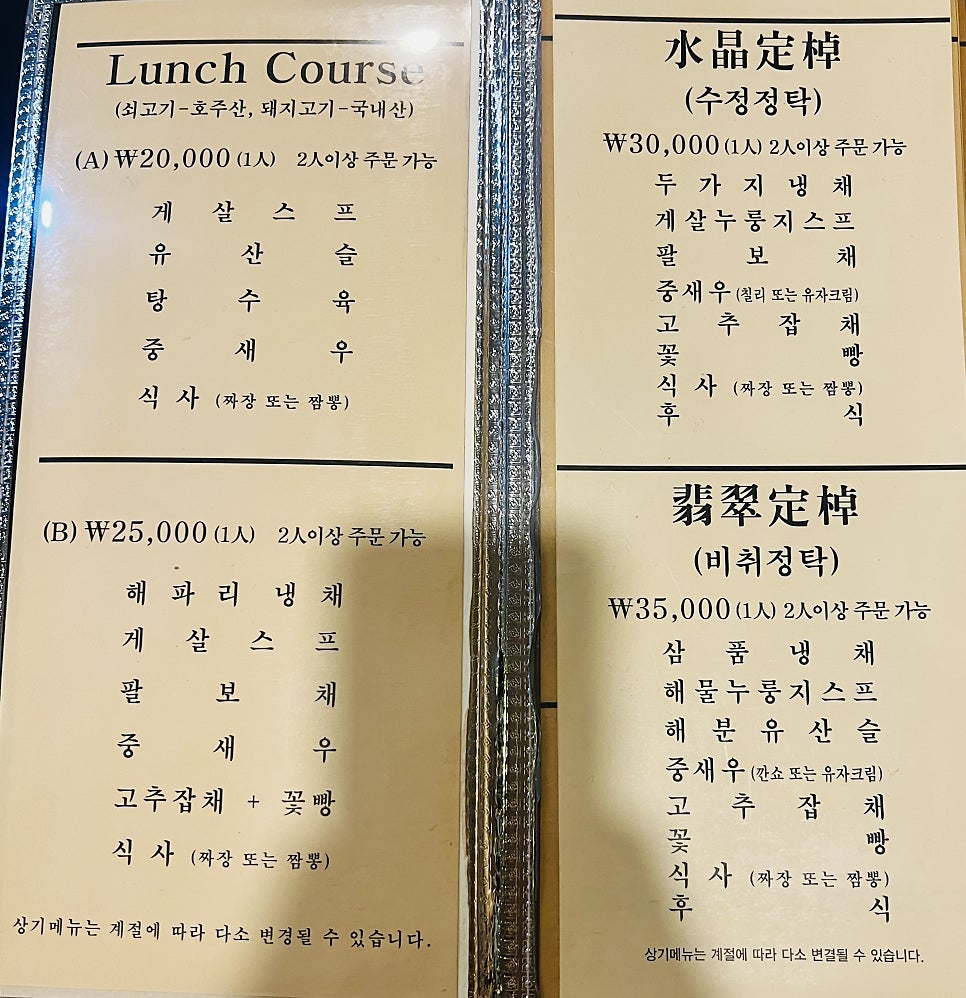 Lunch Course
(쇠고기-호주산, 돼지고기-국내산)
(A) ₩20,000 (1人) 2人이상 주문 가능
게살스프
유산슬
탕수육
중새우
식사 (짜장 또는 짬뽕)
(B) ₩25,000 (1人) 2人이상 주문 가능
해파리냉채
게살스프
팔보채
중새우
고추잡채 + 꽃빵
식사 (짜장 또는 짬뽕)
상기메뉴는 계절에 따라 다소 변경될 수 있습니다.
水晶定棹
(수정정탁)
₩30,000 (1人) 2人이상 주문 가능
두가지냉채
게살누룽지스프
팔보채
중새우 (칠리 또는 유자크림)
고추잡채
꽃빵
식사 (짜장 또는 짬뽕)
후식
翡翠定棹
(비취정탁)
₩35,000 (1人) 2人이상 주문 가능
삼품냉채
해물누룽지스프
해분유산슬
중새우 (깐쇼 또는 유자크림)
고추잡채
꽃빵
식사 (짜장 또는 짬뽕)
후식
상기메뉴는 계절에 따라 다소 변결될 수 있습니다.